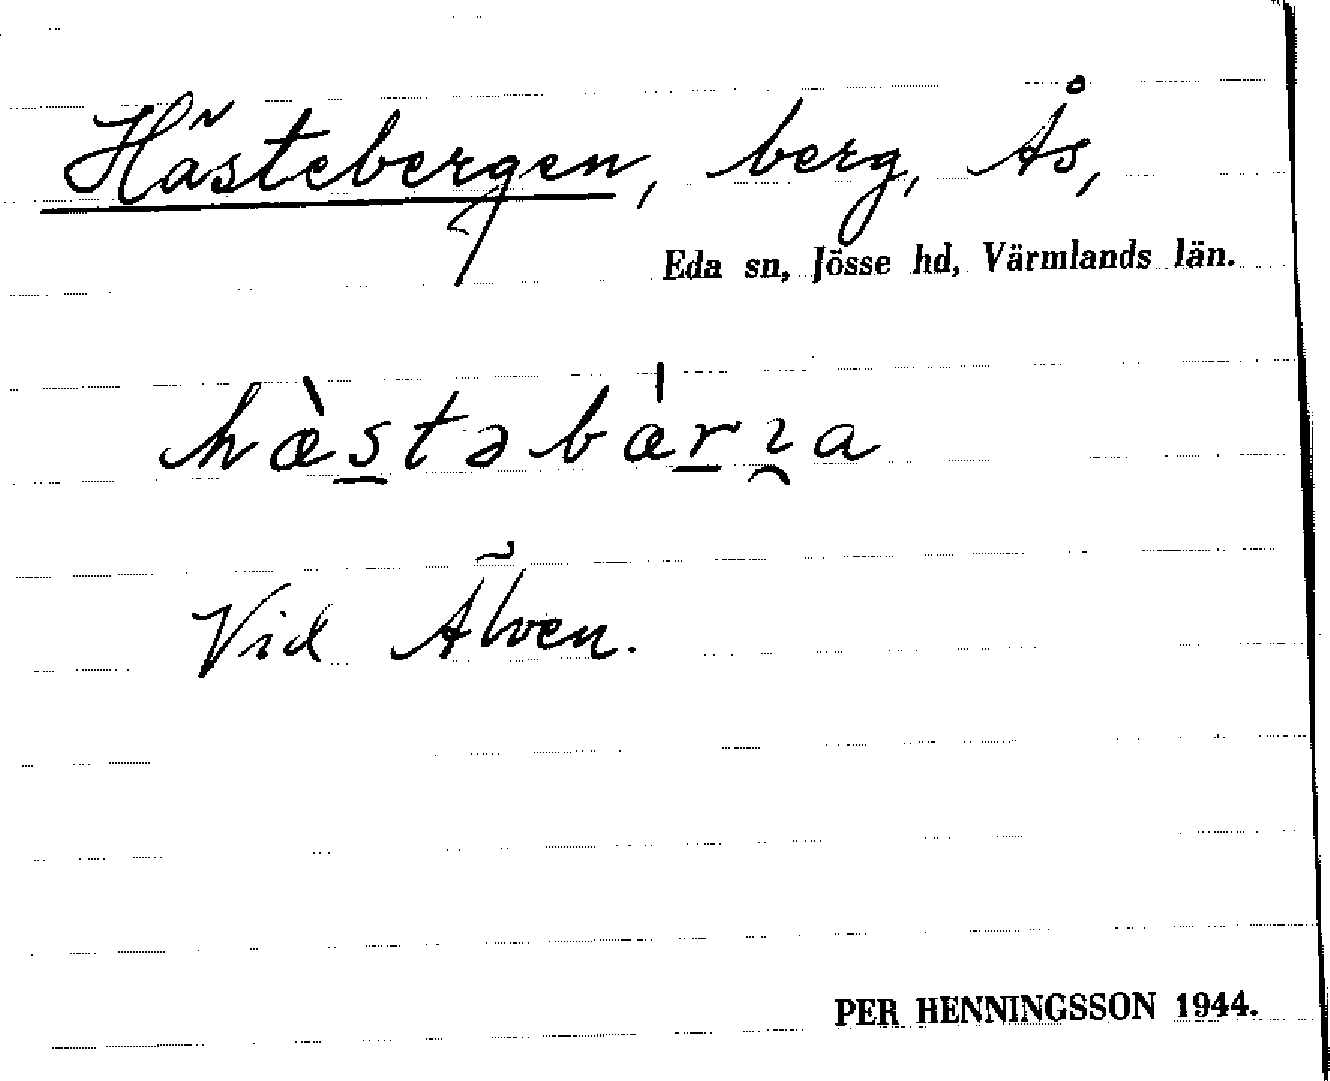 Hästebergen, berg, Ås,
Eda sn, Jösse hd, Värmlands län.
hæ̀stəbæ̍rɿ̯a
Vid Älven.
PER HENNINGSSON 1944.